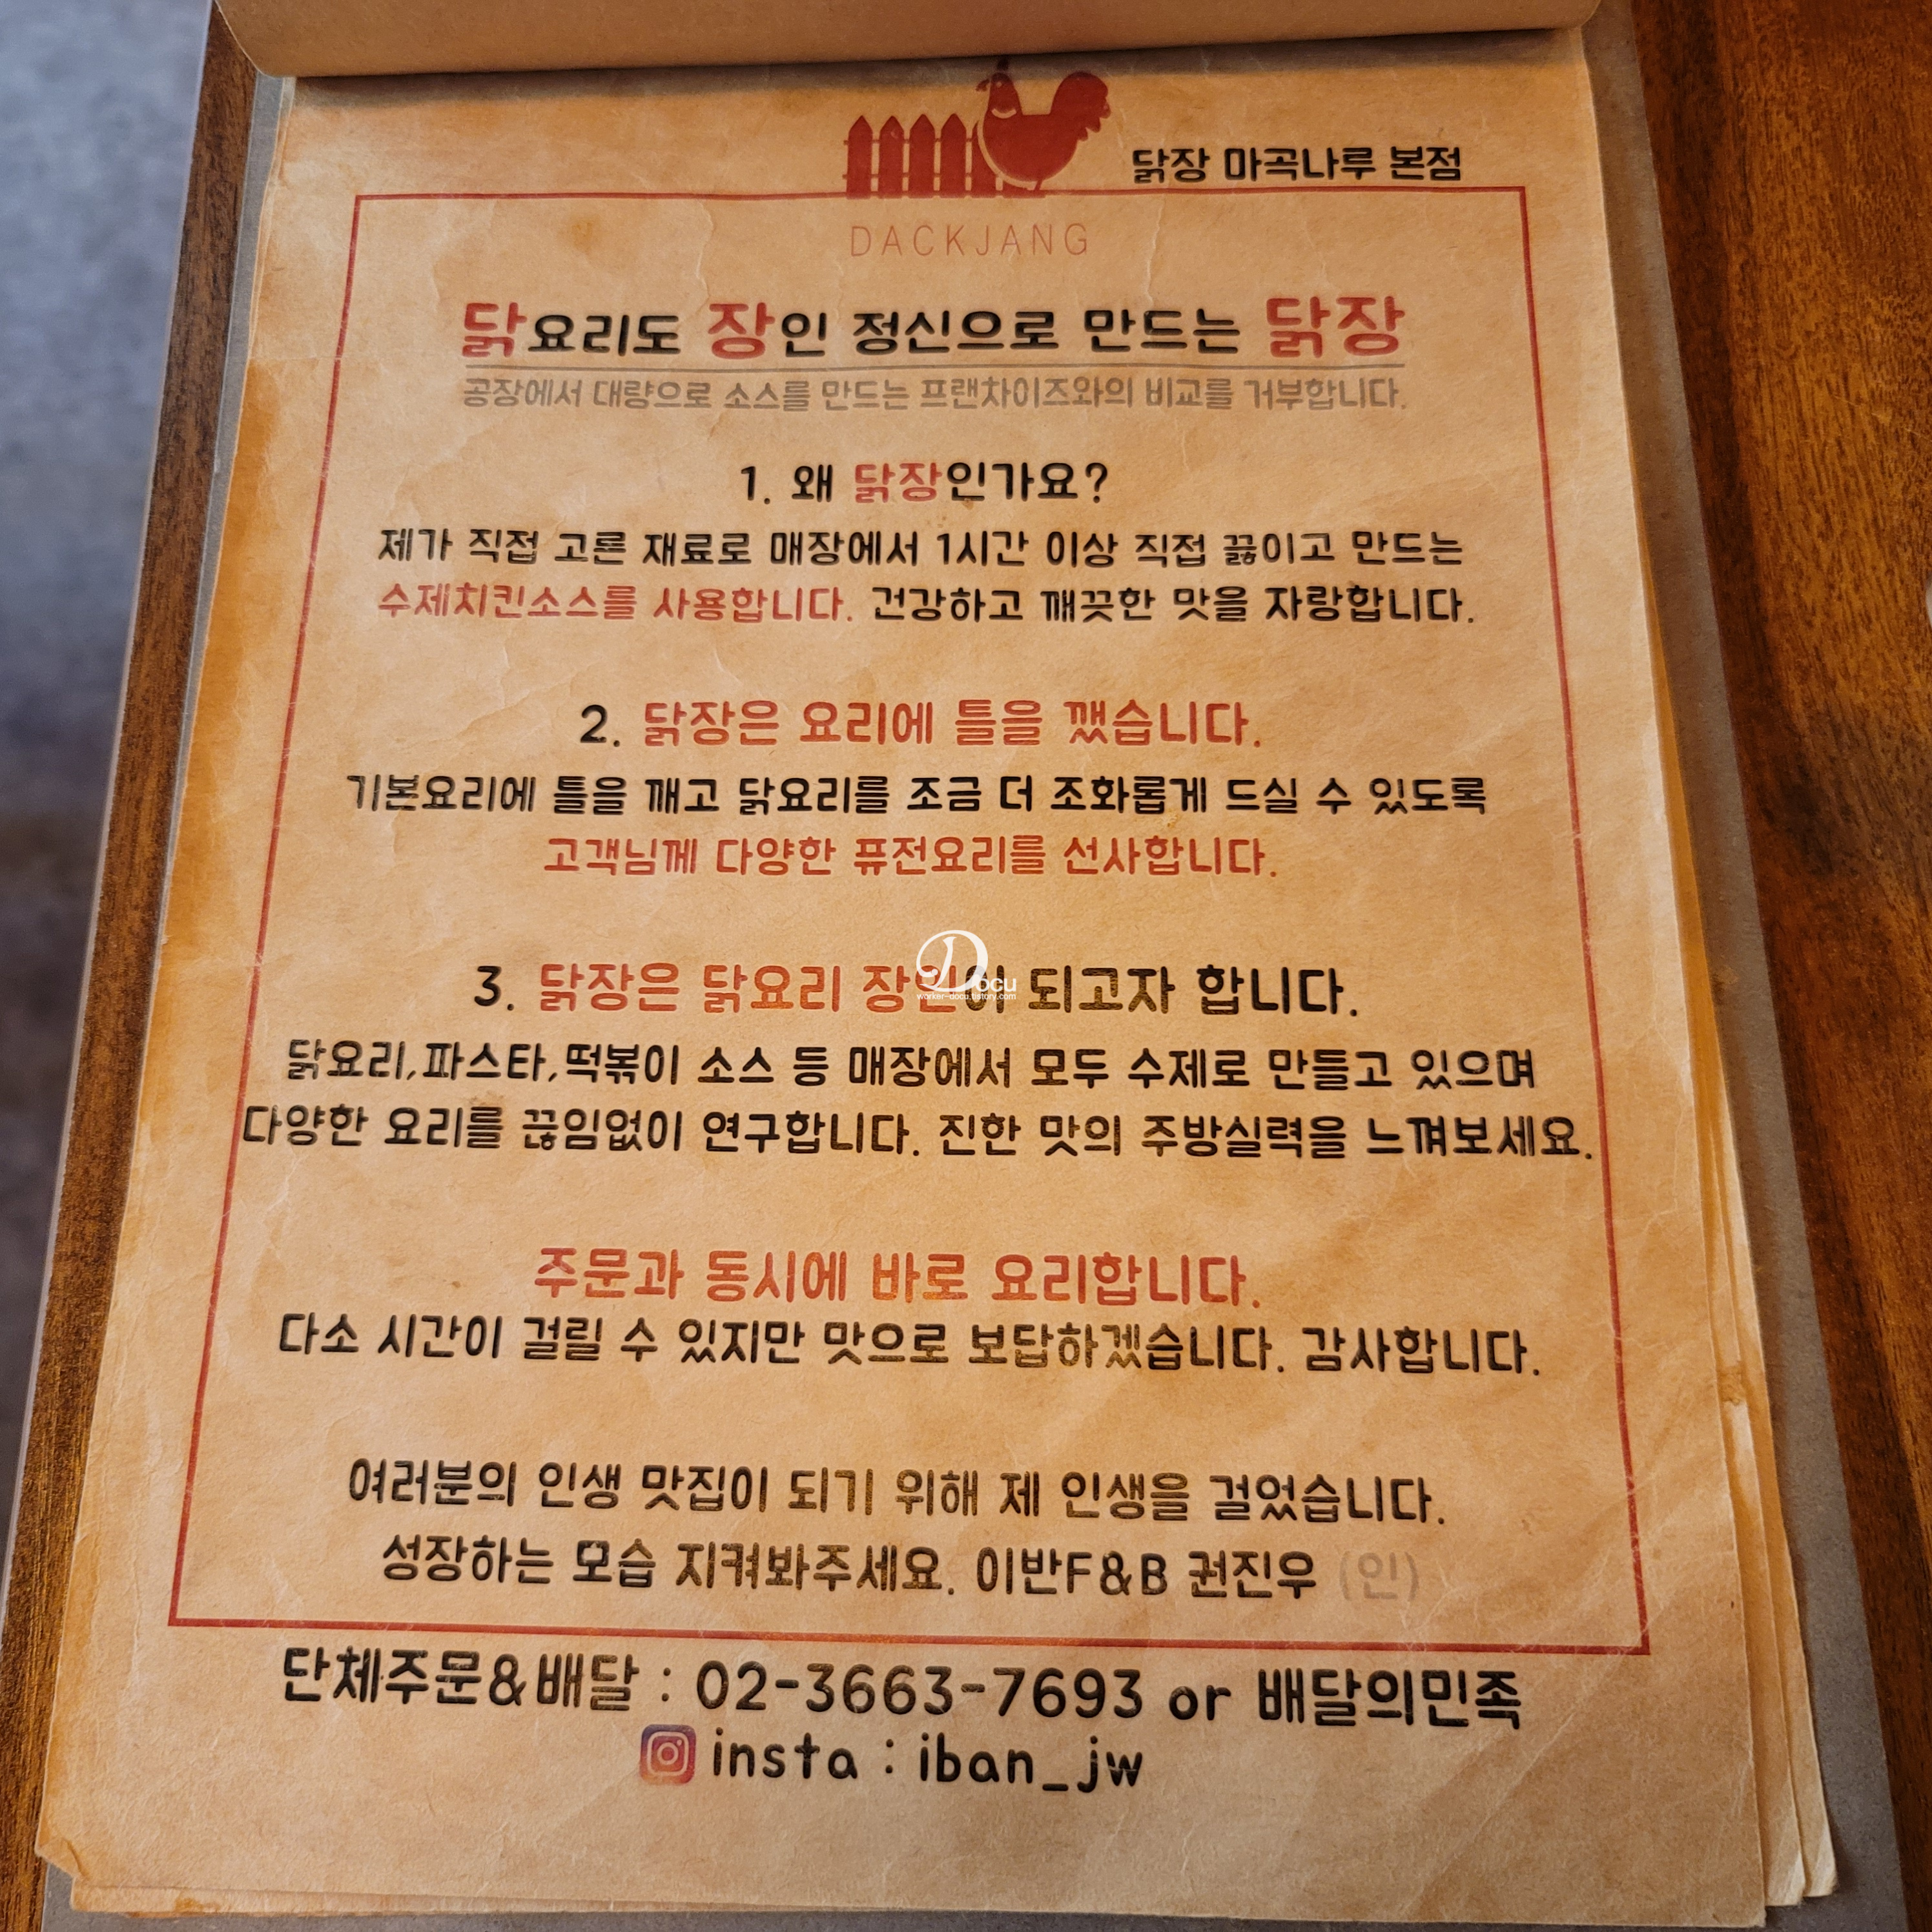 닭장 마곡나루 본점
DACKJANG
닭요리도 장인 정신으로 만드는 닭장
공장에서 대량으로 소스를 만드는 프랜차이즈와의 비교를 거부합니다.
1. 왜 닭장인가요?
제가 직접 고른 재료로 매장에서 1시간 이상 직접 끓이고 만드는
수제치킨소스를 사용합니다. 건강하고 깨끗한 맛을 자랑합니다.
2. 닭장은 요리에 틀을 깼습니다.
기본요리에 틀을 깨고 닭요리를 조금 더 조화롭게 드실 수 있도록
고객님께 다양한 퓨전요리를 선사합니다.
3. 닭장은 닭요리 장인이 되고자 합니다.
Docu
worker-docu.tistory.com
닭요리,파스타,떡볶이 소스 등 매장에서 모두 수제로 만들고 있으며
다양한 요리를 끊임없이 연구합니다. 진한 맛의 주방실력을 느껴보세요.
주문과 동시에 바로 요리합니다.
다소 시간이 걸릴 수 있지만 맛으로 보답하겠습니다. 감사합니다.
여러분의 인생 맛집이 되기 위해 제 인생을 걸었습니다.
성장하는 모습 지켜봐주세요. 이반F&B 권진우 (인)
단체주문&배달 : 02-3663-7693 or 배달의민족
insta : iban_jw